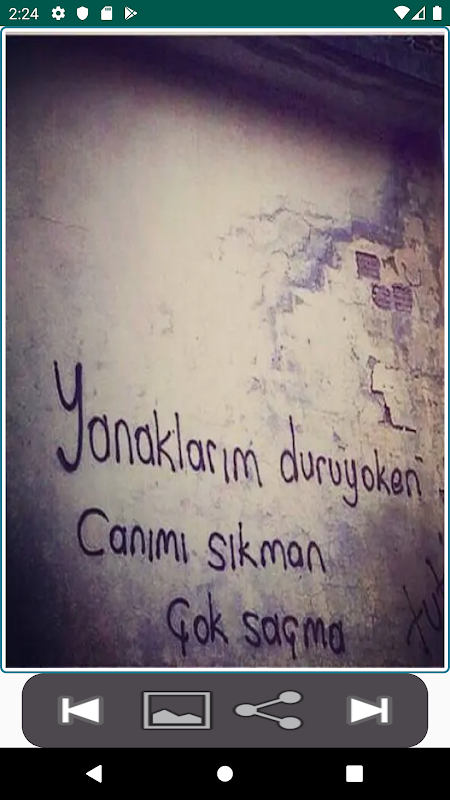 2:24
Yanaklarım duruyoken
Canımı sıkman
Çok saçma